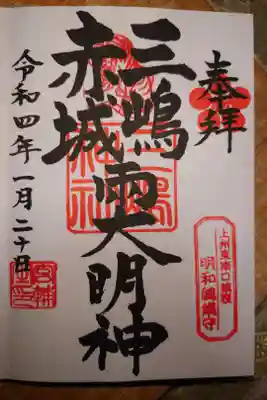 奉拝
三嶋
赤城
両大明神
令和四年一月二十日
上州東南口
明和